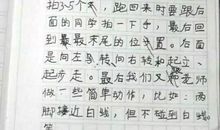 拍3~5个,跑回来时要跟后
面的同学拍一下手,最后回
到最最末尾的位置。后面
是向左转向右转和起立、
起步走。最后我们又老师
做一些简单动作,比如:两
脚接近白线,但不碰到白线
等